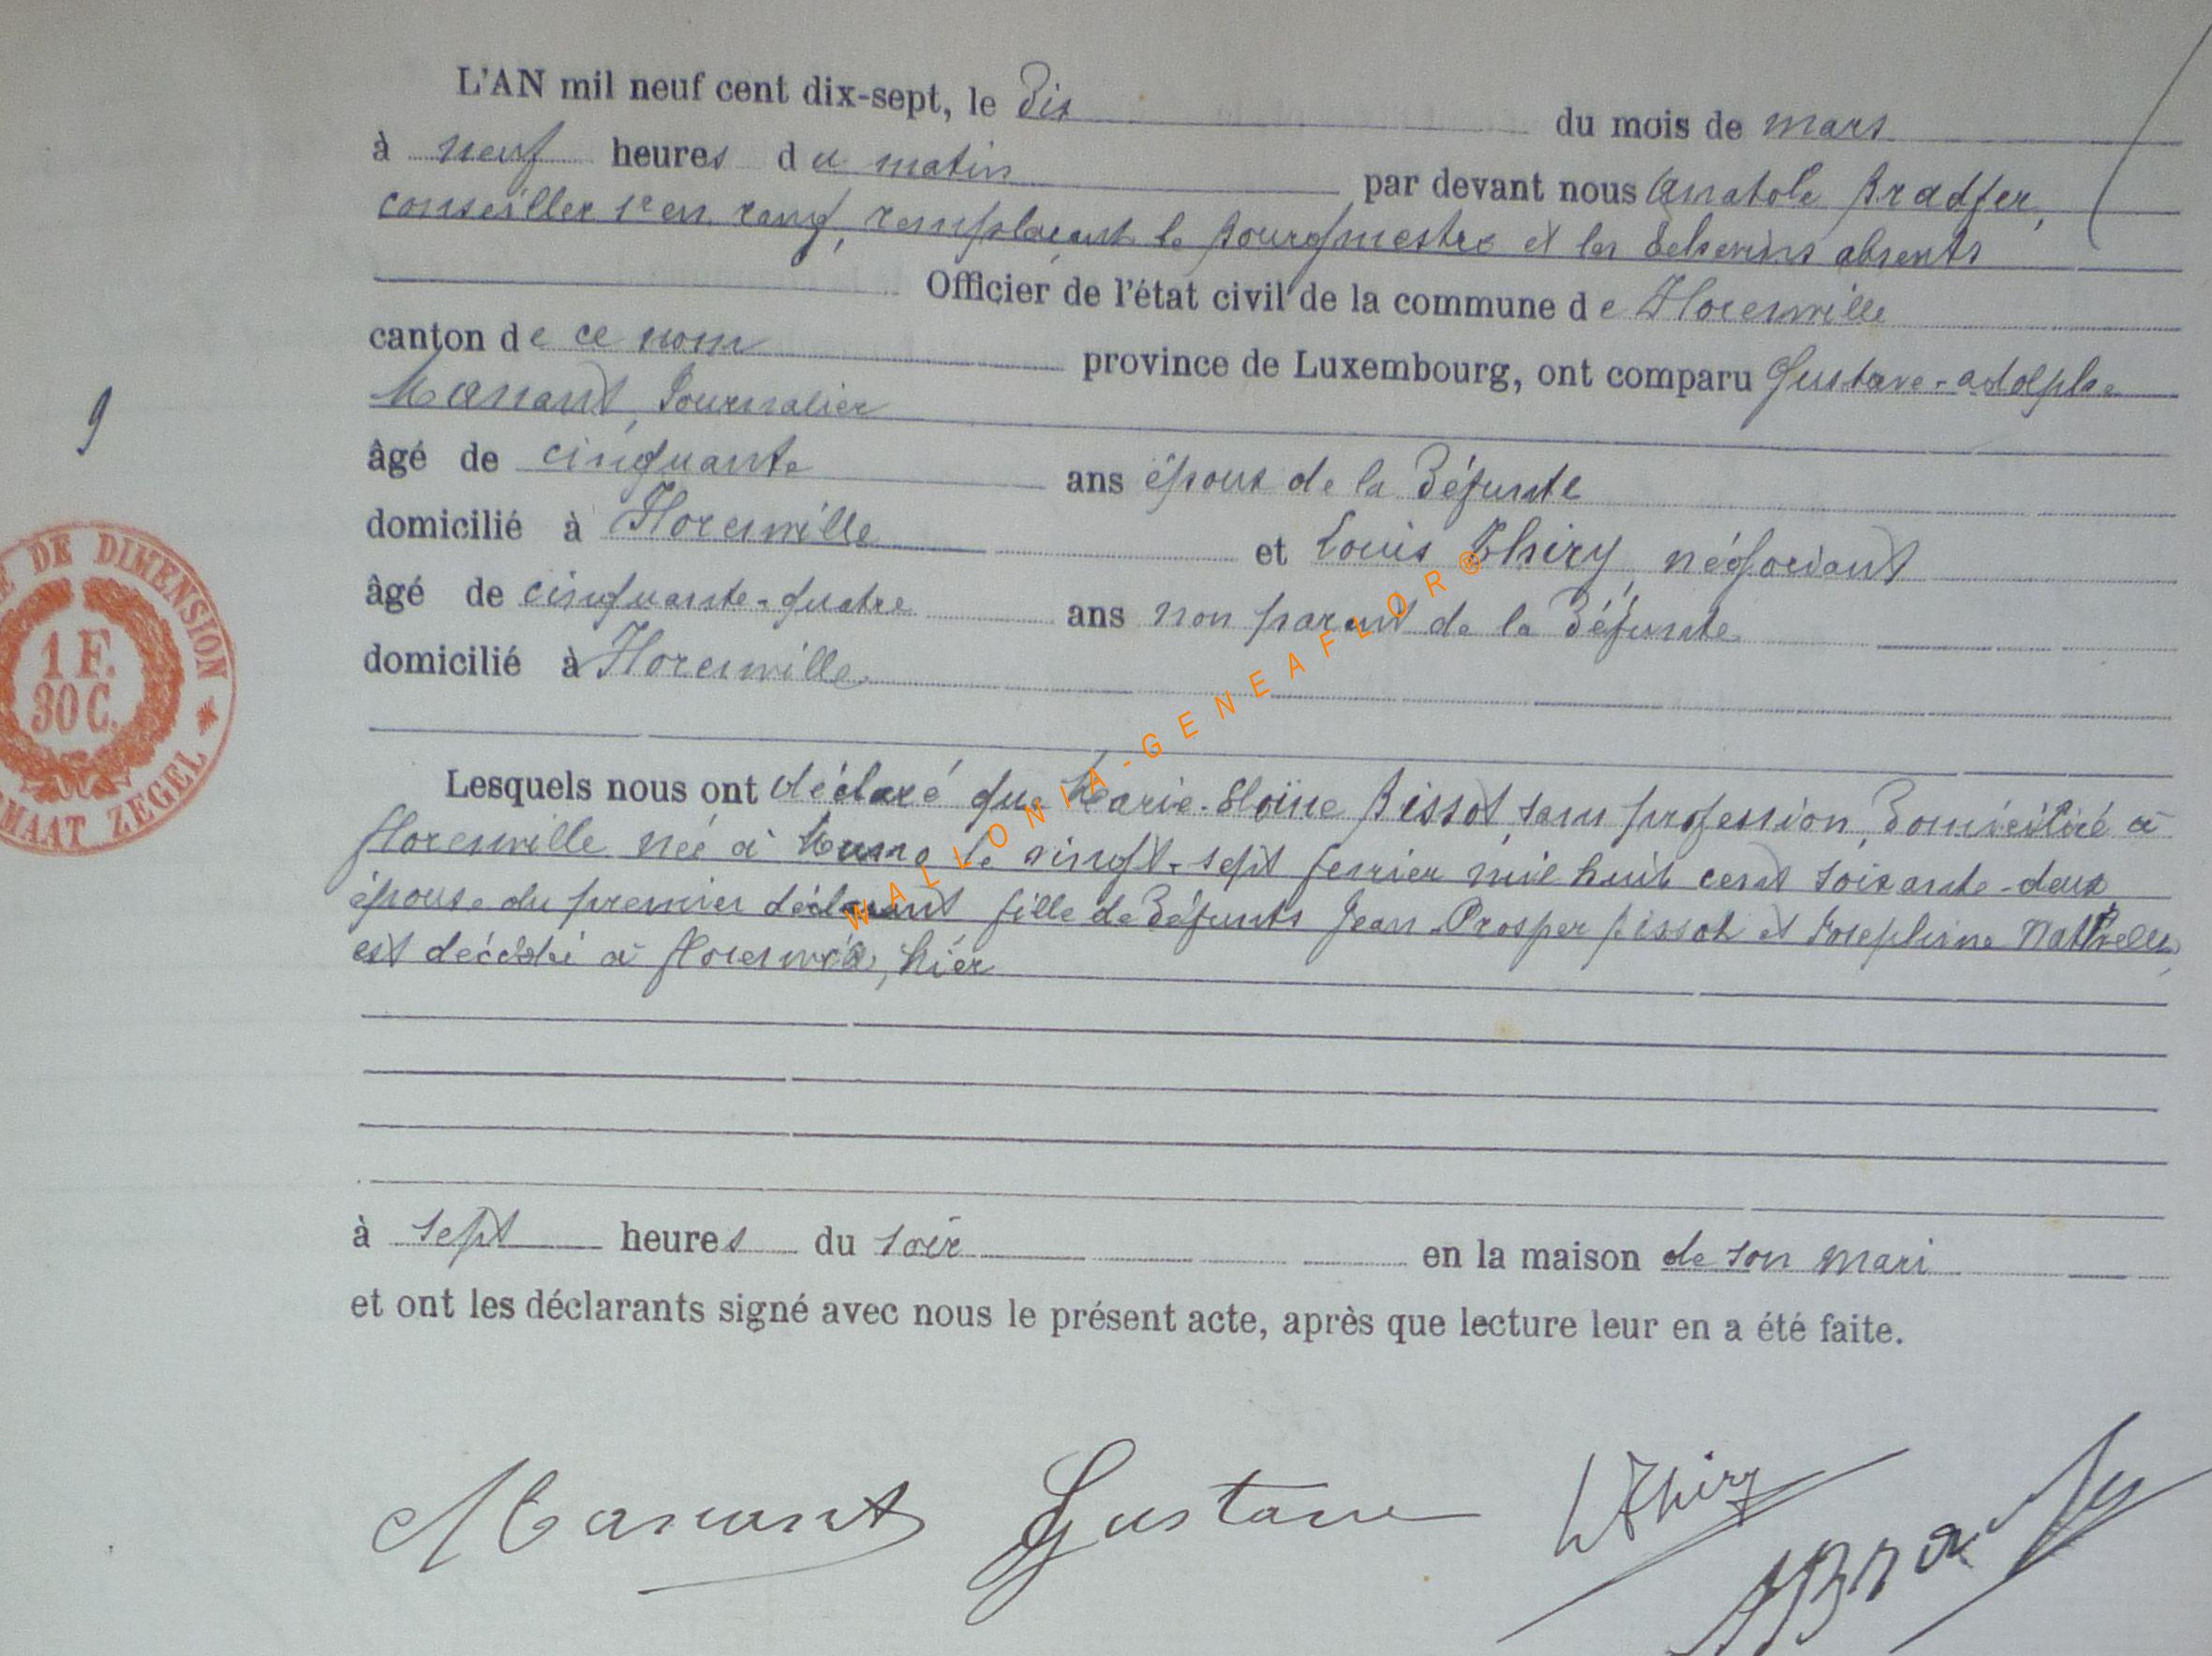 L'AN mil neuf cent dix-sept, le Dix du mois de mars
à neuf heures du matin par devant nous Anatole Bradfer,
conseiller 1er en rang, remplaçant le Bourgmestre et les Echevins absents
Officier de l'état civil de la commune de Florenville
canton de ce nom province de Luxembourg, ont comparu Gustave-Adolphe
Manant, Journalier
âgé de cinquante ans époux de la Défunte
domicilié à Florenville et Louis Thiry, négociant
9
âgé de cinquante-quatre ans non parent de la Défunte
domicilié à Florenville
DE DIMENSION
1 F.
30 C.
MAAT ZEGEL
WALLONIA-GENEAFLOR®
Lesquels nous ont déclaré que Marie-Eloïne Bissot, sans profession, Domiciliée à
Florenville née à Muno le vingt-sept fevrier mil huit cent soixante-deux
épouse du premier déclarant fille de Défunts Jean-Prosper Bissot et Josephine
est décédée à Florenville, hier
à sept heures du soir en la maison de son mari
et ont les déclarants signé avec nous le présent acte, après que lecture leur en a été faite.
Manant Gustave L Thiry